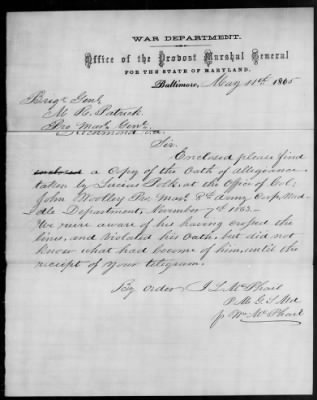 WAR DEPARTMENT.
Office of the Provost Marshal General
FOR THE STATE OF MARYLAND,
Baltimore, May 11th 1865
Brigr Genl
M R. Patrick
Pro Marl Genl.
Richmond Va.
Sir.
Enclosed please find
a copy of the Oath of allegiance
taken by Lucius Polk, at the Office of Col;
John Woolley Pro. Marl 8th Army Corps, Mid-
dle Department, November 7th 1863.—
We were aware of his having crossed the
lines, and violated his Oath, but did not
know what had become of him, until the
receipt of your telegram.
By order J L McPhail
P. M. G. S. Md
p Wm McPhail